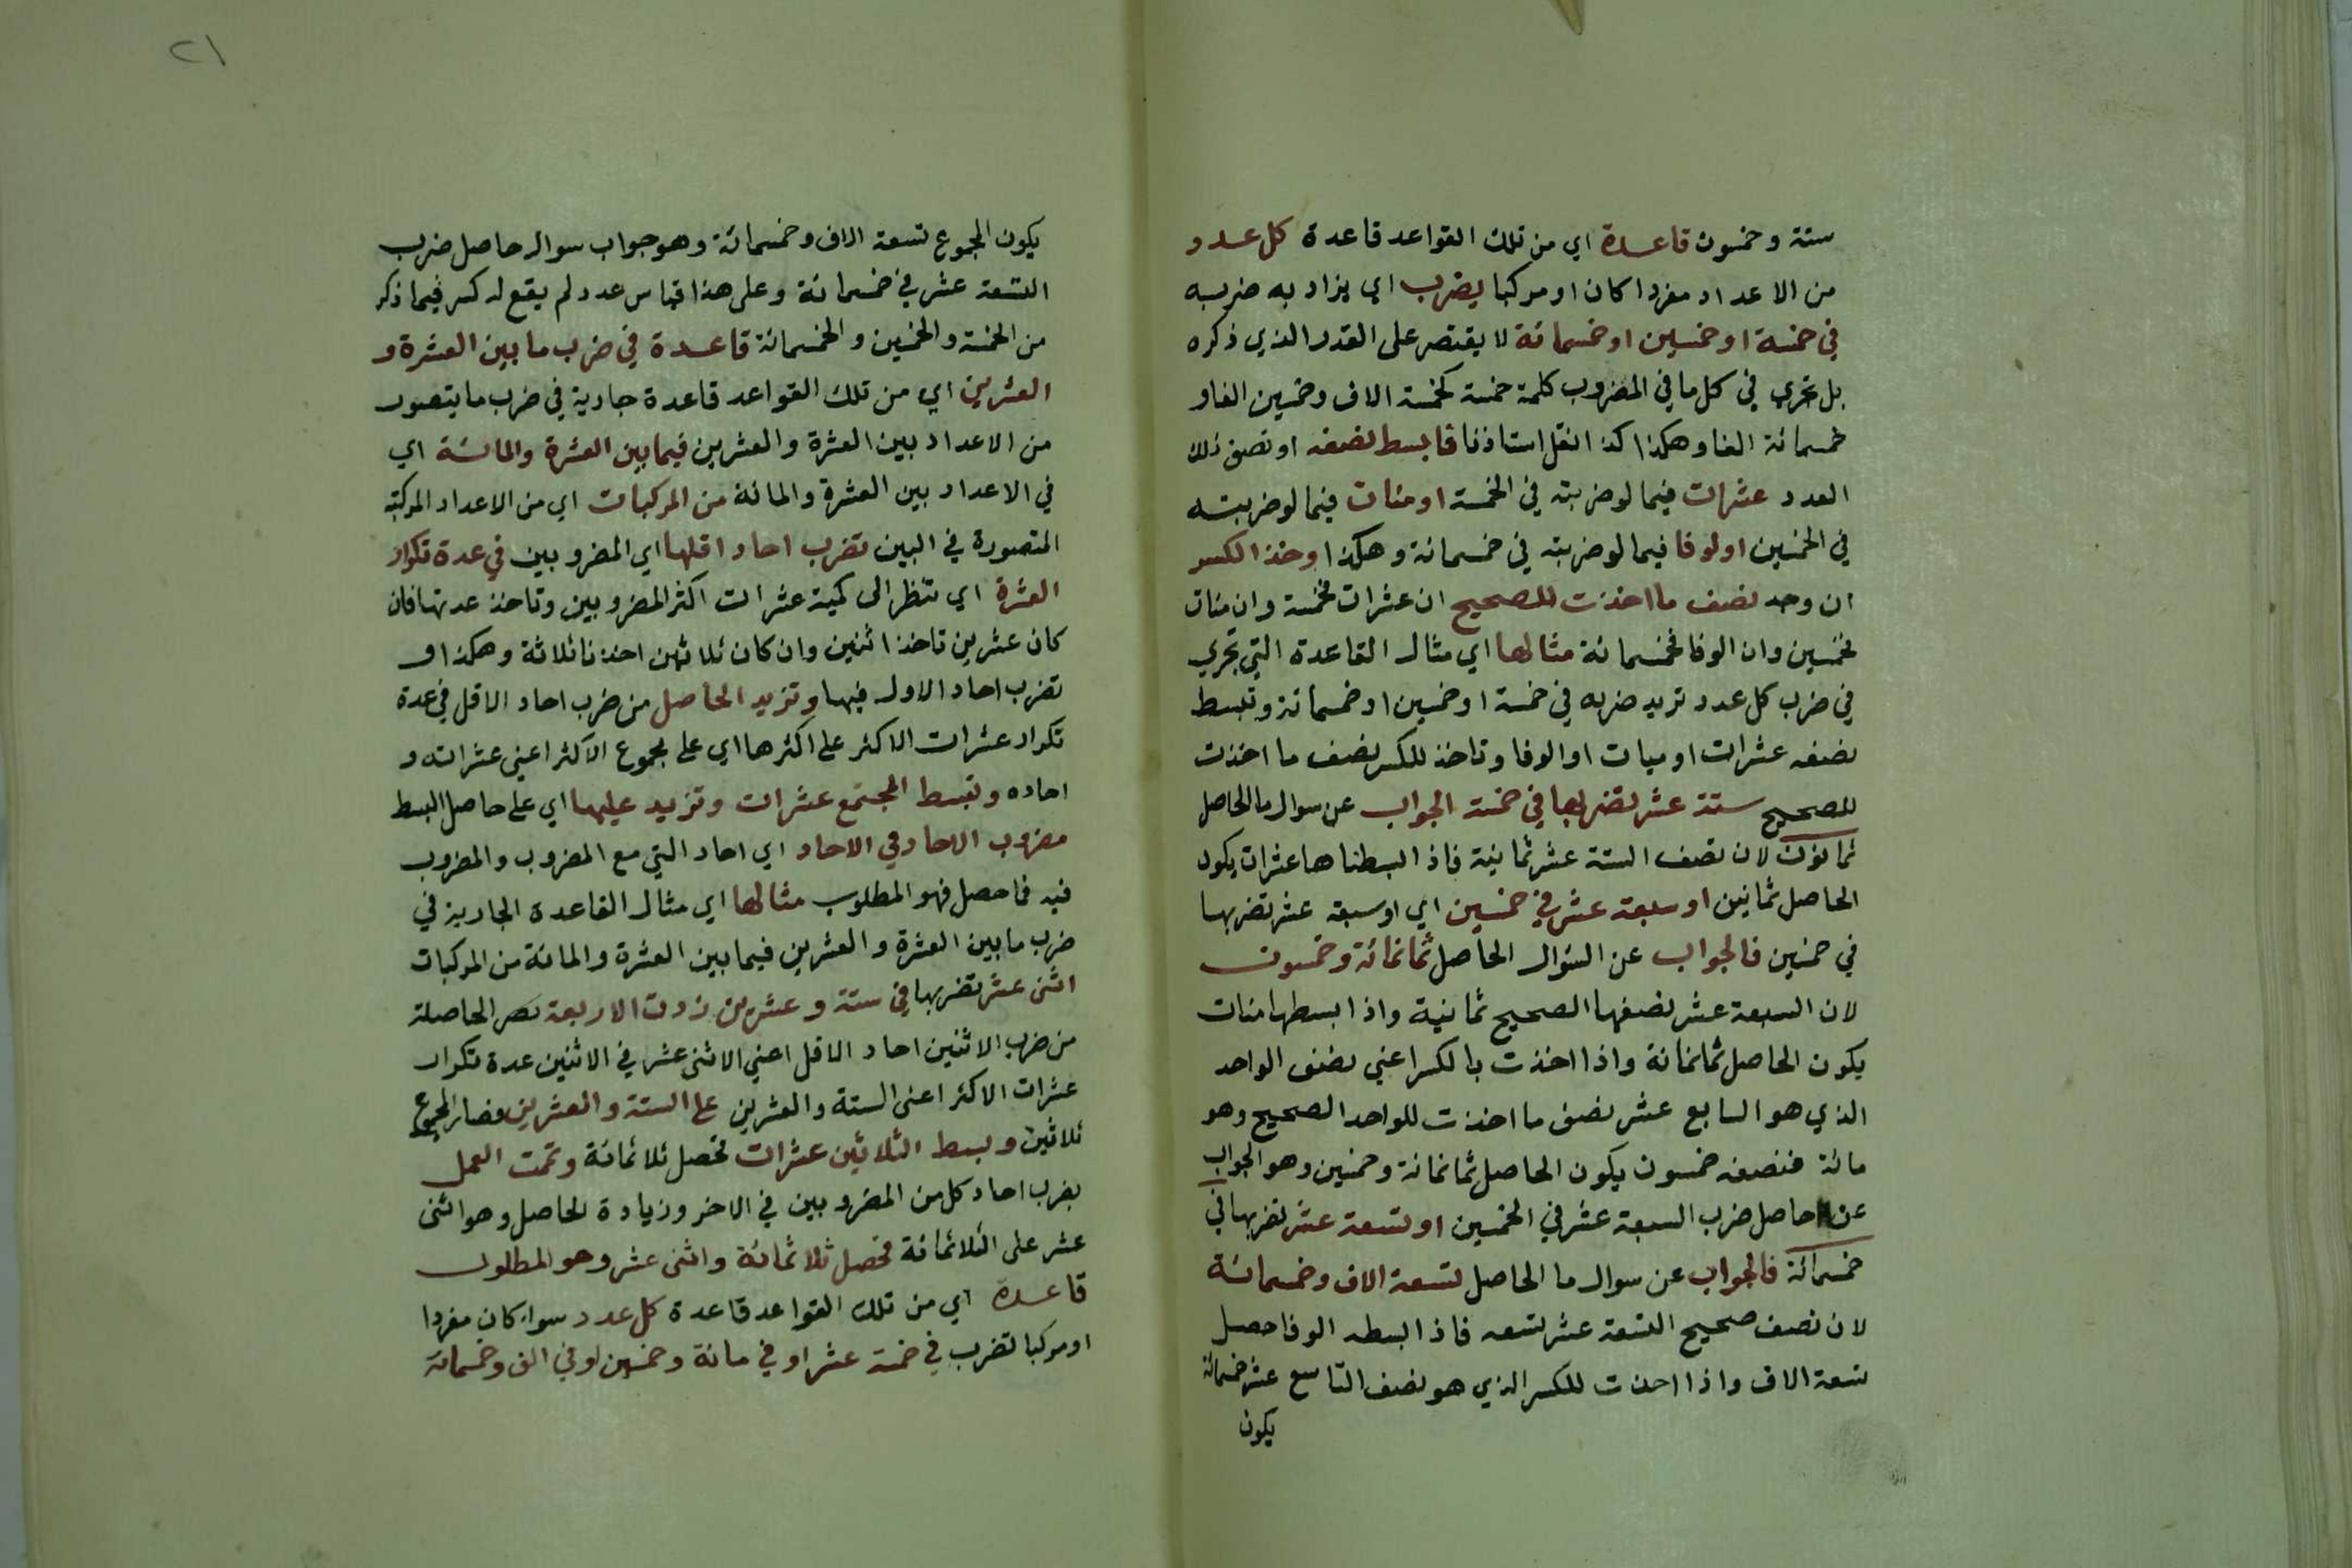 ستة وخمسون قاعدة اي من تلك القواعد قاعدة كل عدد
من الاعداد مفردا كان او مركبا يضرب اي يزاد به ضربه
في خمسة او خمسين او خمسمائة لا يقتصر على القدر الذي ذكره
بل تجري في كل ما في المضروب كلمة خمسة كخمسة الاف وخمسين الفا و
خمسمائة الفا وهكذا كذا نقل استاذنا فابسط نصفه او نصف ذلك
العدد عشرات فيما لو ضربته في الخمسة او مئات فيما لو ضربته
في الخمسين او لوفا فيما لو ضربته في خمسمائة وهكذا وخذ الكسر
ان وجد نصف ما اخذت للصحيح ان عشرات فخمسة وان مئات
فخمسين وان الوفا فخمسمائة مثالها اي مثال القاعدة التي تجري
في ضرب كل عدد تريد ضربه في خمسة او خمسين او خمسمائة وتبسط
نصفه عشرات او ميات او الوفا وتاخذ للكسر نصف ما اخذت
للصحيح ستة عشر تضربها في خمسة الجواب عن سوال ما الحاصل
ثمانون لان نصف الستة عشر ثمانية فاذا بسطناها عشرات يكون
الحاصل ثمانين او سبعة عشر في خمسين اي او سبعة عشر تضربها
في خمسين فالجواب عن السؤال الحاصل ثمانمائة وخمسون
لان السبعة عشر نصفها الصحيح ثمانية واذا بسطها مئات
يكون الحاصل ثمانمائة واذا اخذت بالكسر اعني نصف الواحد
الذي هو السابع عشر نصف ما اخذت للواحد الصحيح وهو
مائة فنصفه خمسون يكون الحاصل ثمانمائة وخمسين وهو الجواب
عن حاصل ضرب السبعة عشر في الخمسين او تسعة عشر تضربها في
خمسمائة فالجواب عن سوال ما الحاصل تسعة الاف وخمسمائة
لان نصف صحيح التسعة عشر تسعه فاذا بسطه الوفا حصل
تسعة الاف واذا اخذت للكسر الذي هو نصف التاسع عشر خمسمائة
يكون
٢١
يكون المجموع تسعة الاف وخمسمائة وهو جواب سوال حاصل ضرب
التسعة عشر في خمسمائة وعلى هذا قياس عدد لم يقع له كسر فيما ذكر
من الخمسة والخمسين والخمسمائة قاعدة في ضرب ما بين العشرة و
العشرين اي من تلك القواعد قاعدة جارية في ضرب ما يتصور
من الاعداد بين العشرة والعشرين فيما بين العشرة والمائة اي
في الاعداد بين العشرة والمائة من المركبات اي من الاعداد المركبة
المتصورة في البين تضرب احاد اقلها اي المضروبين في عدة تكرار
العشرة اي تنظر الى كمية عشرات اكثر المضروبين وتاخذ عدتها فان
كان عشرين تاخذ اثنين وان كان ثلاثين اخذنا ثلاثة وهكذا و
تضرب احاد الاول فيها وتزيد الحاصل من ضرب احاد الاقل في عدة
تكرار عشرات الاكثر على اكثرها اي على مجموع الاكثر اعني عشراته و
احاده وتبسط المجتمع عشرات وتزيد عليها اي على حاصل البسط
مضروب الاحاد في الاحاد اي احاد التي مع المضروب والمضروب
فيه فما حصل فهو المطلوب مثالها اي مثال القاعدة الجارية في
ضرب ما بين العشرة والعشرين فيما بين العشرة والمائة من المركبات
اثنى عشر تضربها في ستة وعشرين زدت الاربعة الحاصلة
من ضرب الاثنين احاد الاقل اعني الاثنى عشر في الاثنين عدة تكرار
عشرات الاكثر اعنى الستة والعشرين على الستة والعشرين فصار المجموع
ثلاثين وبسط الثلاثين عشرات تحصل ثلاثمائة وتمت العمل
بضرب احاد كل من المضروبين في الاخر وزيادة الحاصل وهو اثنى
عشر على الثلاثمائة فحصل ثلاثمائة واثنى عشر وهو المطلوب
قاعدة اي من تلك القواعد قاعدة كل عدد سواء كان مفردا
او مركبا تضرب في خمسة عشر او في مائة وخمسين او في الف وخمسمائة